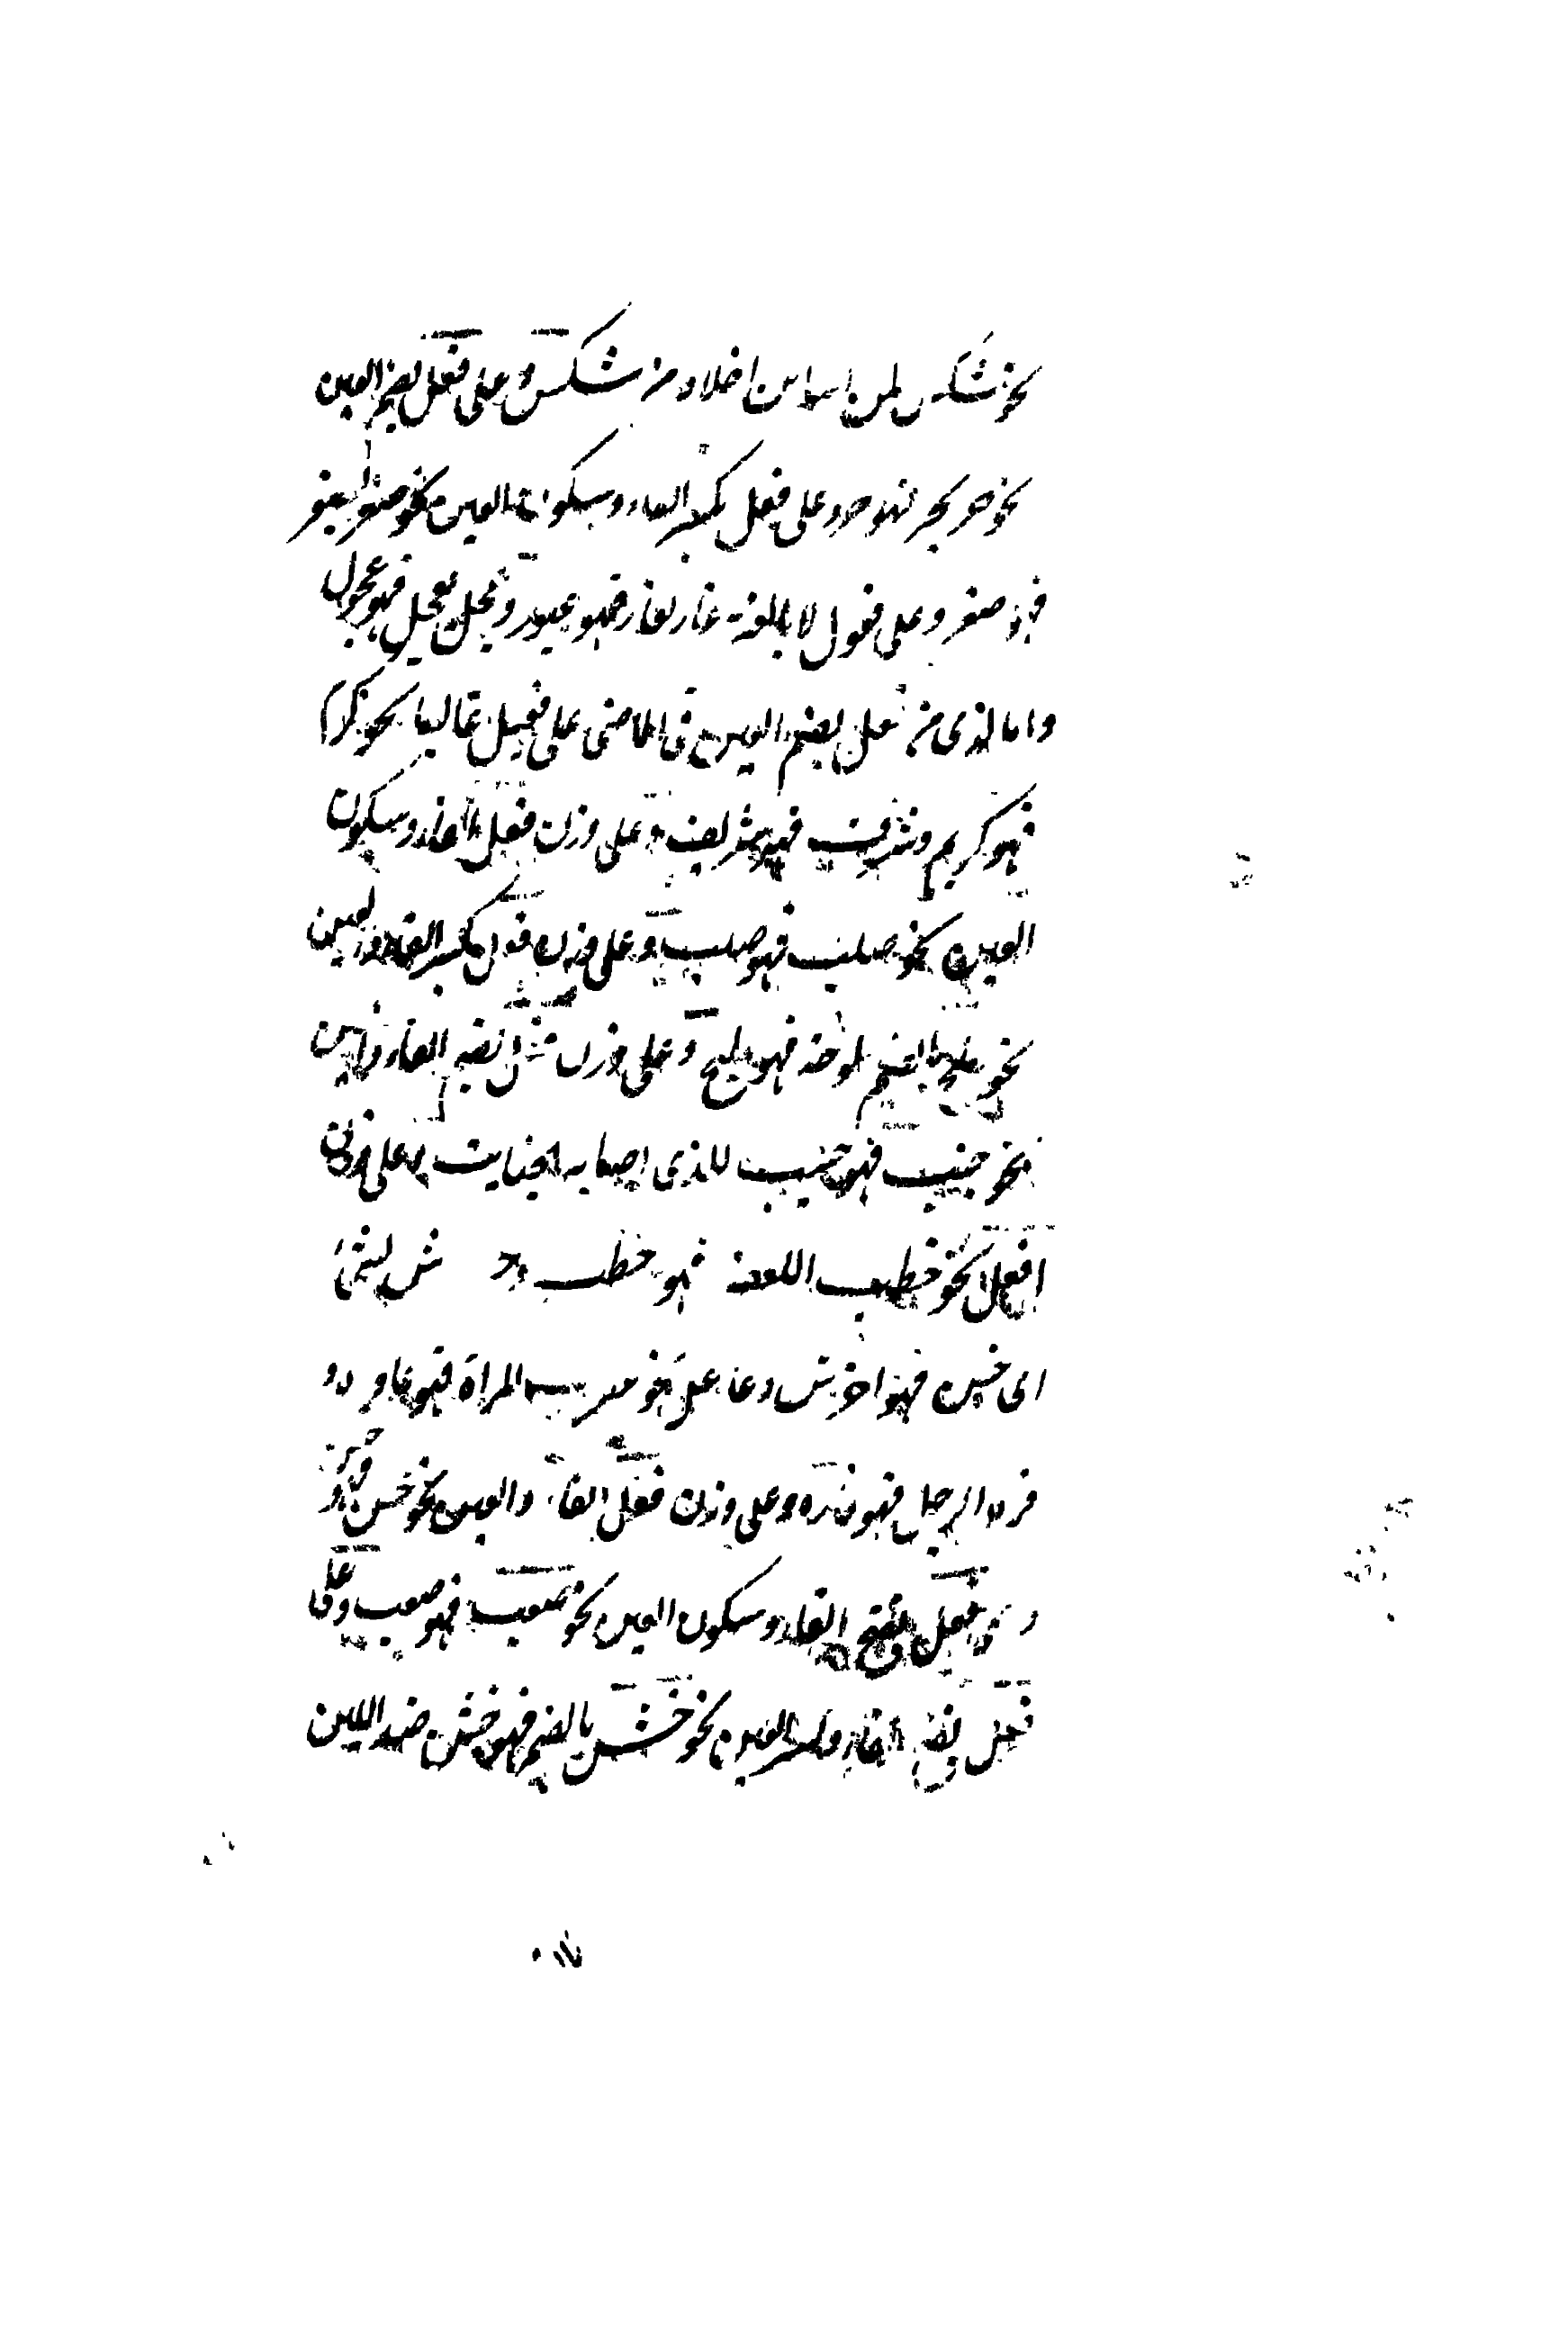 نحو شكس لمن اخلاقه من شكس وعلى فعل بضم العين
نحو حر يحر فهو حر وعلى فعل بكسر الفاء وسكون العين نحو صفر يصفر
فهو صفر وعلى فعول لا بالغة غار يغار فهو غيور وعجل يعجل فهو عجول
واما الذى من فعل بضم العين فى الماضى على فعيل غالبا نحو كرم
فهو كريم وشرف فهو شريف وعلى وزن فعل الفاء وسكون
العين نحو صلب فهو صلب وعلى وزن فعل بكسر الفاء والعين
نحو ملح بالضم ملوحة فهو ملح وعلى وزن فعل بضم الفاء والعين
نحو جنب فهو جنب للذى اصابه الجنابت وعلى وزن
افعل نحو خطب اللون فهو خطب
اى خشن فهو اخرش وفاعل نحو المراة فهو عاقر
فره الرجل فهو فاره وعلى وزن فعل الفاء والعين نحو حسن
فعل بفتح الفاء وسكون العين نحو صعب فهو صعب وعلى
فعل بفتح الفاء وكسر العين نحو خشن بالضم فهو خشن ضد اللين